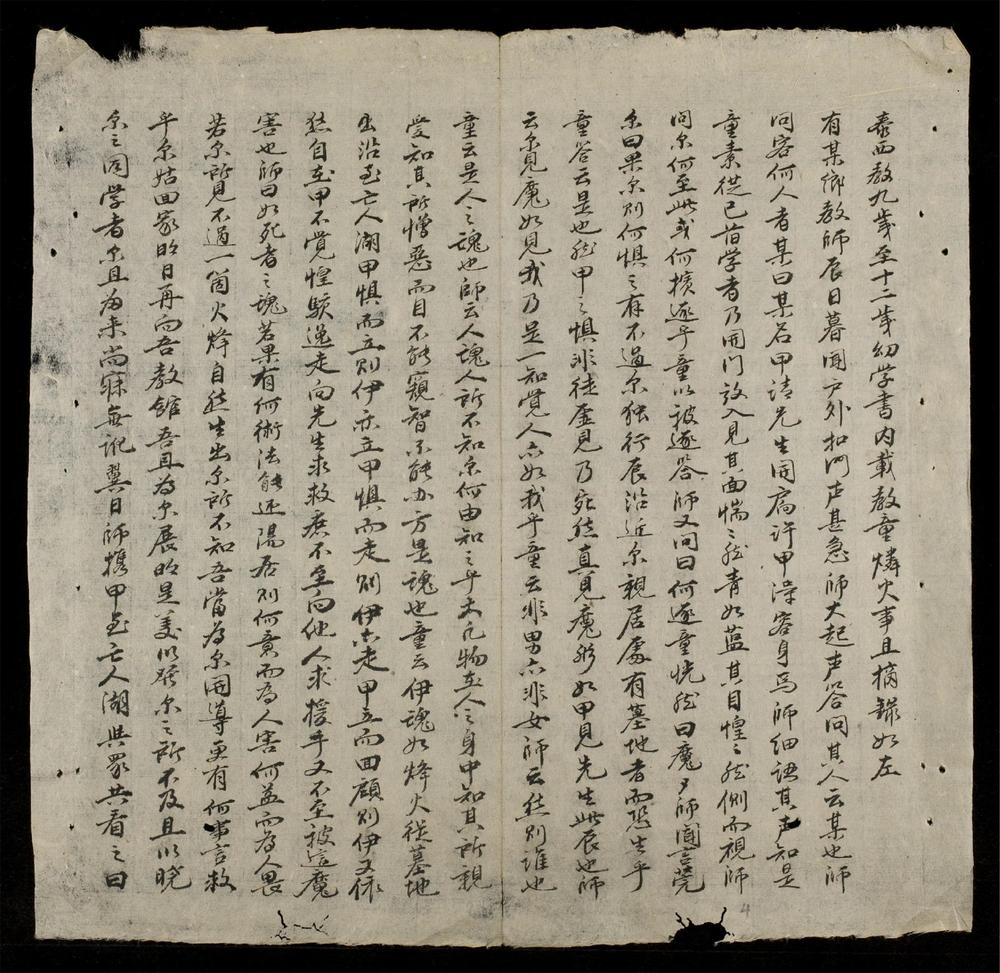 泰西教九歳至十二歳幼学書内載教童燐火事且摘錄如左
有某鄉教師辰日暮闻户外扣门声甚急師大起声答问其人云某也師
问容何人者某曰某名甲请先生闭扃许甲淂容身焉師细认其声知是
童素從己旹学者乃開门放入見其面惴〻然青如蓝其目惶〻然侧而視師
问尔何至此或何擯逐乎童以被逐答師又问曰何逐童恍然曰魔夕師闻言莞
尔曰果尔则何惧之有不過尔独行辰沿近尔親居處有墓地者而恐生乎
童答云是也然甲之惧非徒虚見乃宛然真見魔形如甲見先生此辰也師
云尔見魔如見我乃是一知觉人亦如我乎童云非男亦非女師云然则誰也
童云是人之魂也師云人魂人所不知尔何由知之乎夫凡物在人之身中知其所親
受知其所憎恶而目不能窺智不能办方是魂也童云伊魂如烽火從墓地
出沿至亡人湖甲惧而立则伊亦立甲惧而走则伊亦走甲立而回顧则伊又依
然自在甲不觉惶駭逸走向先生求救庶不至向他人求援乎又不至被這魔
害也師曰如死者之魂若果有何術法能还陽居则何意而為人害何益而為人畏
若尔所見不過一箇火烽自然生出尔所不知吾當為尔開導更有何事言救
乎尔姑回家明日再向吾教館吾且為尔展明是美以啓尔之所不及且以曉
尔之同学者尔且為来尚寐無訛翼日師携甲至亡人湖與眾共看之曰
4